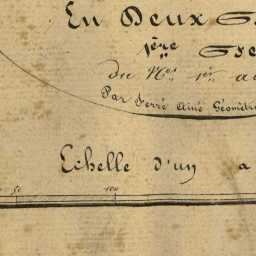 En Deux
1ère
du Nos 1er
Par Ferré Ainé Géomètre
Echelle d'un a
50 100